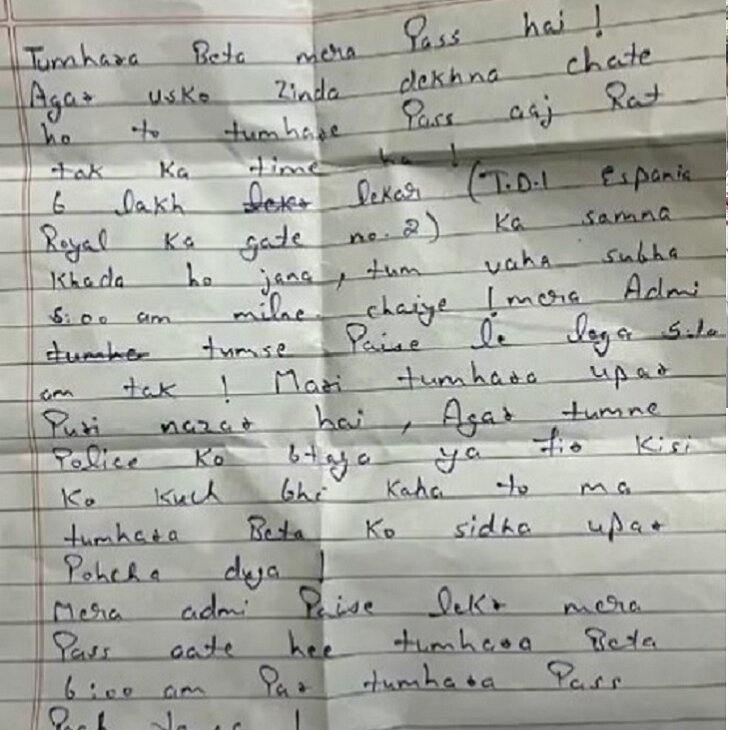 Tumhara Beta mera Pass hai !
Agar usko Zinda dekhna chate
ho to tumhare Pass aaj Rat
tak Ka time ha !
6 lakh lekar (T.D.I Espania
Royal Ka gate no. 2) Ka samna
Khada ho jana, tum vaha subha
5:00 am milne chaiye ! mera Admi
tumhe tumse Paise le lega
am tak ! Mari tumhara upar
Puri nazar hai, Agar tumne
Police Ko btaya ya fir Kisi
Ko Kuch bhi Kaha to ma
tumhara Beta Ko sidha upar
Pohcha duga !
Mera admi Paise lekr mera
Pass aate hee tumhara Beta
6:00 am Par tumhara Pass